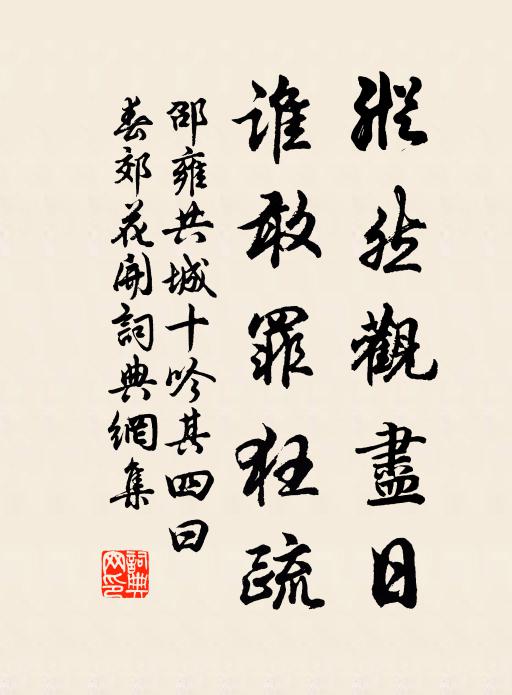 縱然觀盡日
誰敢罪狂疏
邵雍共城十吟其四曰
春郊花開詞典網集
詞典
网印